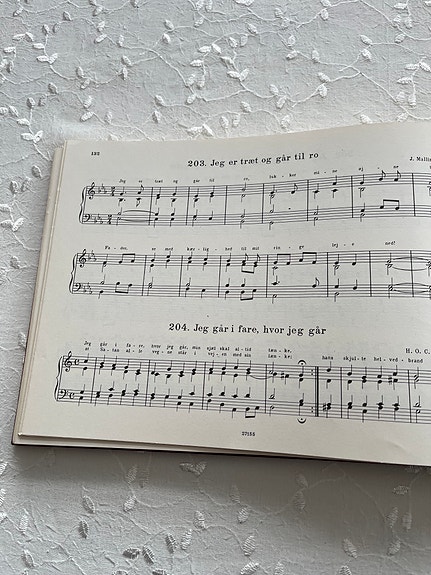 132
203. Jeg er træt og går til ro
J. Malli
Jeg er træt og går til ro, luk-ker mi-ne øj-ne
Fa-der, se med kær-lig-hed til mit rin-ge lej-e ned!
204. Jeg går i fare, hvor jeg går
H. O. C.
Jeg går i fa-re, hvor jeg går, min sjæl skal al-tid tæn-ke,
at Sa-tan al-le veg-ne står i vej-en med sin læn-ke;
hans skjul-te hel-ved-brand
27155